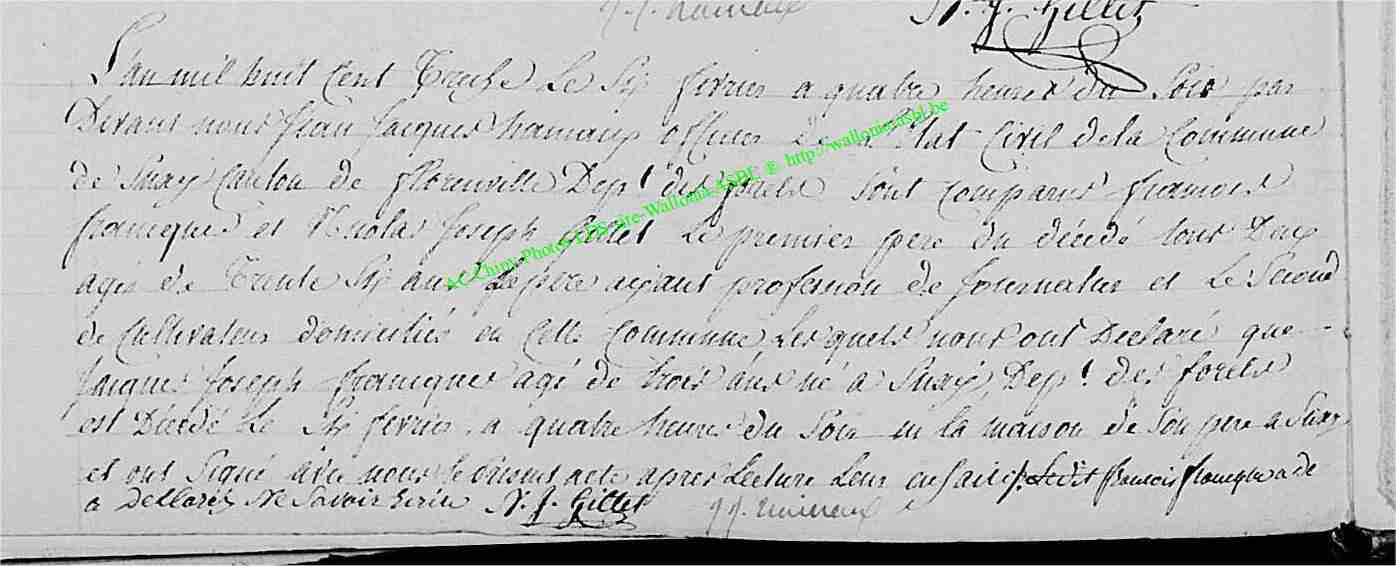 N. J. Gillet
L'an mil huit cent Treize Le Six fevrier a quatre heures du Soir par
Devant nous Jean Jacques hamaux officier De l'Etat Civil de la Commune
de Suxy Canton de florenville Dept des forets Sont comparus francois
francques et Nicolas Joseph Gillet Le premier pere du décédé tous Deux
agés de Trente Six ans Le pere aÿant profession de Journalier et Le Second
de Cultivateur domiciliés en Cette Commune Lesquels nous ont Declaré que
Jacques Joseph francques agé de trois ans né a Suxÿ Dept. Des forets
est Décédé Le Six fevrier a quatre heures du Soir en la maison de Son pere a Suxy
et ont Signé avec nous le présent acte apres Lecture Leur en faite Ledit francois francques a de
a Dellaré Ne Savoir Ecrire N. J. Gillet
AC Chiny-Photos LPB site-Wallonia ASBL ® http://walloniaasbl.be